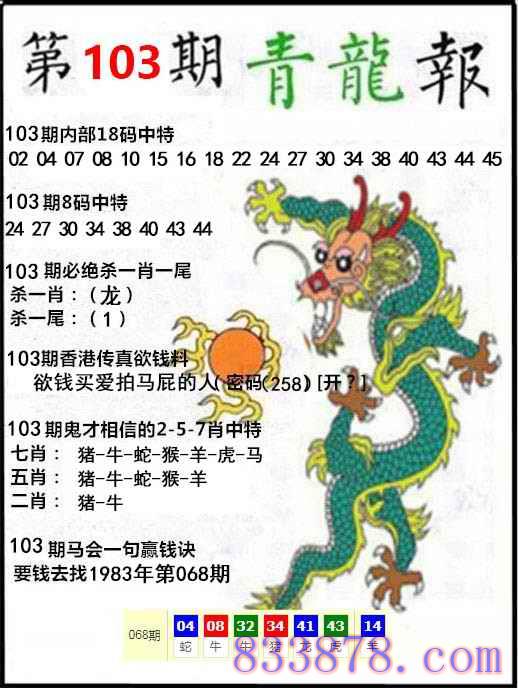 第103期 青龍報
103期内部18码中特
02 04 07 08 10 15 16 18 22 24 27 30 34 38 40 43 44 45
103期8码中特
24 27 30 34 38 40 43 44
103期必绝杀一肖一尾
杀一肖：（龙）
杀一尾：（1）
103期香港传真欲钱料
欲钱买爱拍马屁的人(密码(258)[开?]
103期鬼才相信的2-5-7肖中特
七肖： 猪-牛-蛇-猴-羊-虎-马
五肖： 猪-牛-蛇-猴-羊
二肖： 猪-牛
103期马会一句赢钱诀
要钱去找1983年第068期
068期 04 08 32 34 41 43 14
蛇 牛 牛 猪 龙 虎 羊
833878.com